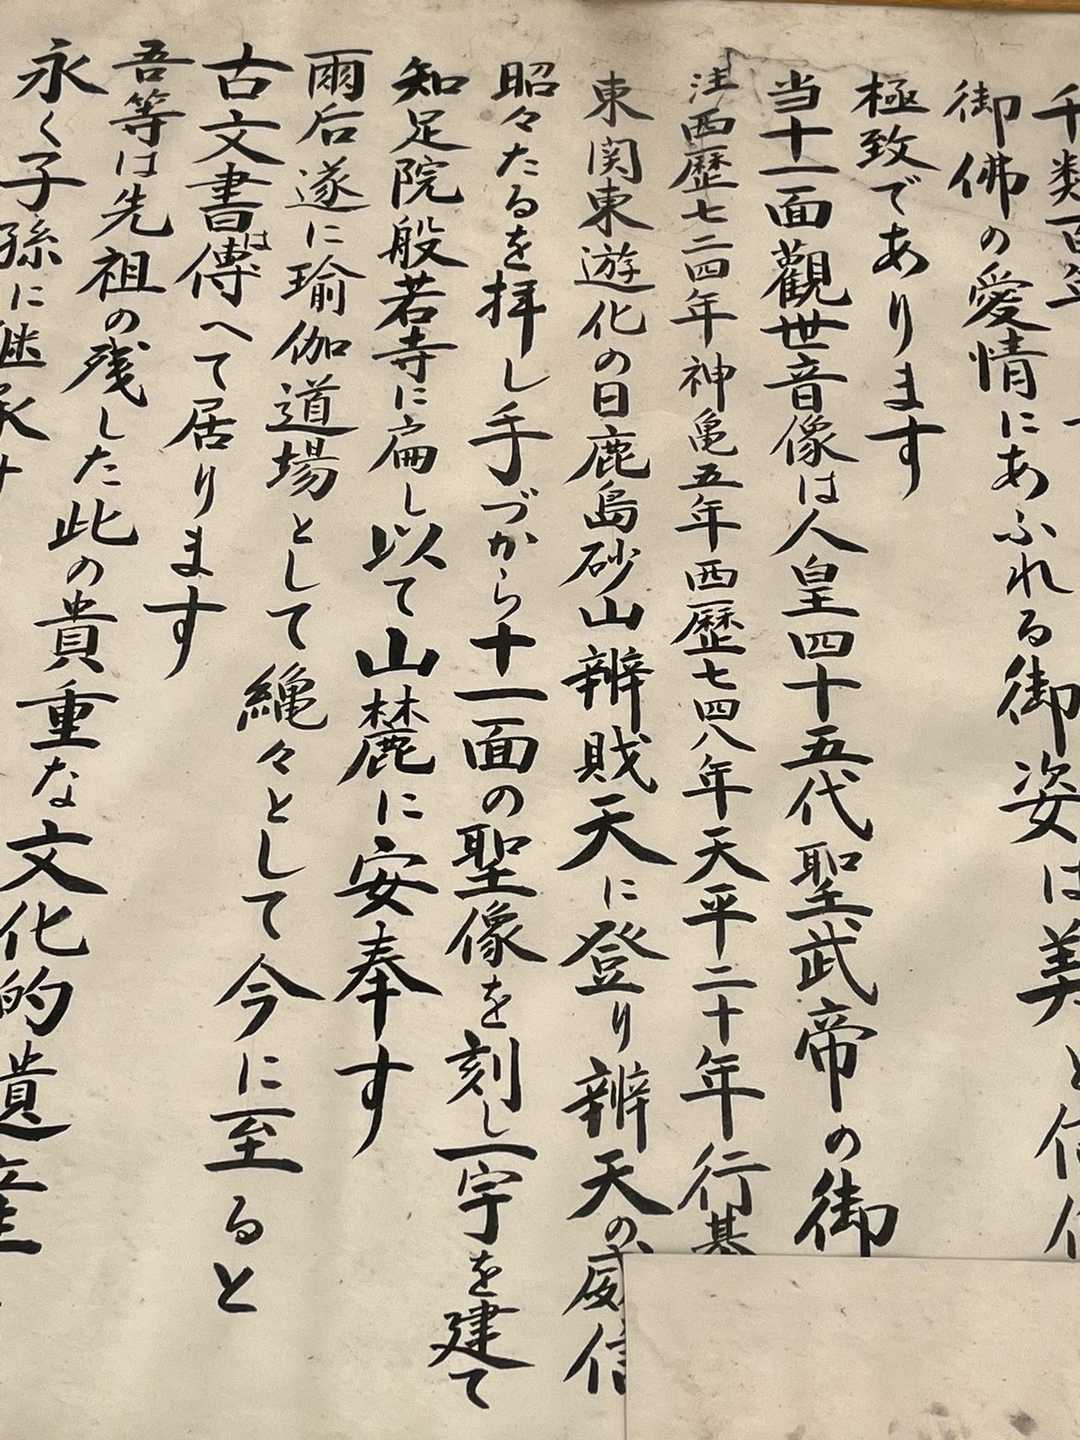 千類百年
御佛の愛情にあふれる御姿は美と信仰
極致であります
当十一面觀世音像は人皇四十五代聖武帝の御
注西歴七二四年神亀五年西歴七四八年天平二十年行基
東関東遊化の日鹿島砂山辨賎天に登り辨天の威信
昭々たるを拝し手づから十一面の聖像を刻し一宇を建て
知足院般若寺に扁し以て山麓に安奉す
爾后遂に瑜伽道場として縄々として今に至ると
古文書は傳へて居ります
吾等は先祖の残した此の貴重な文化的遺産
永く子孫に継承